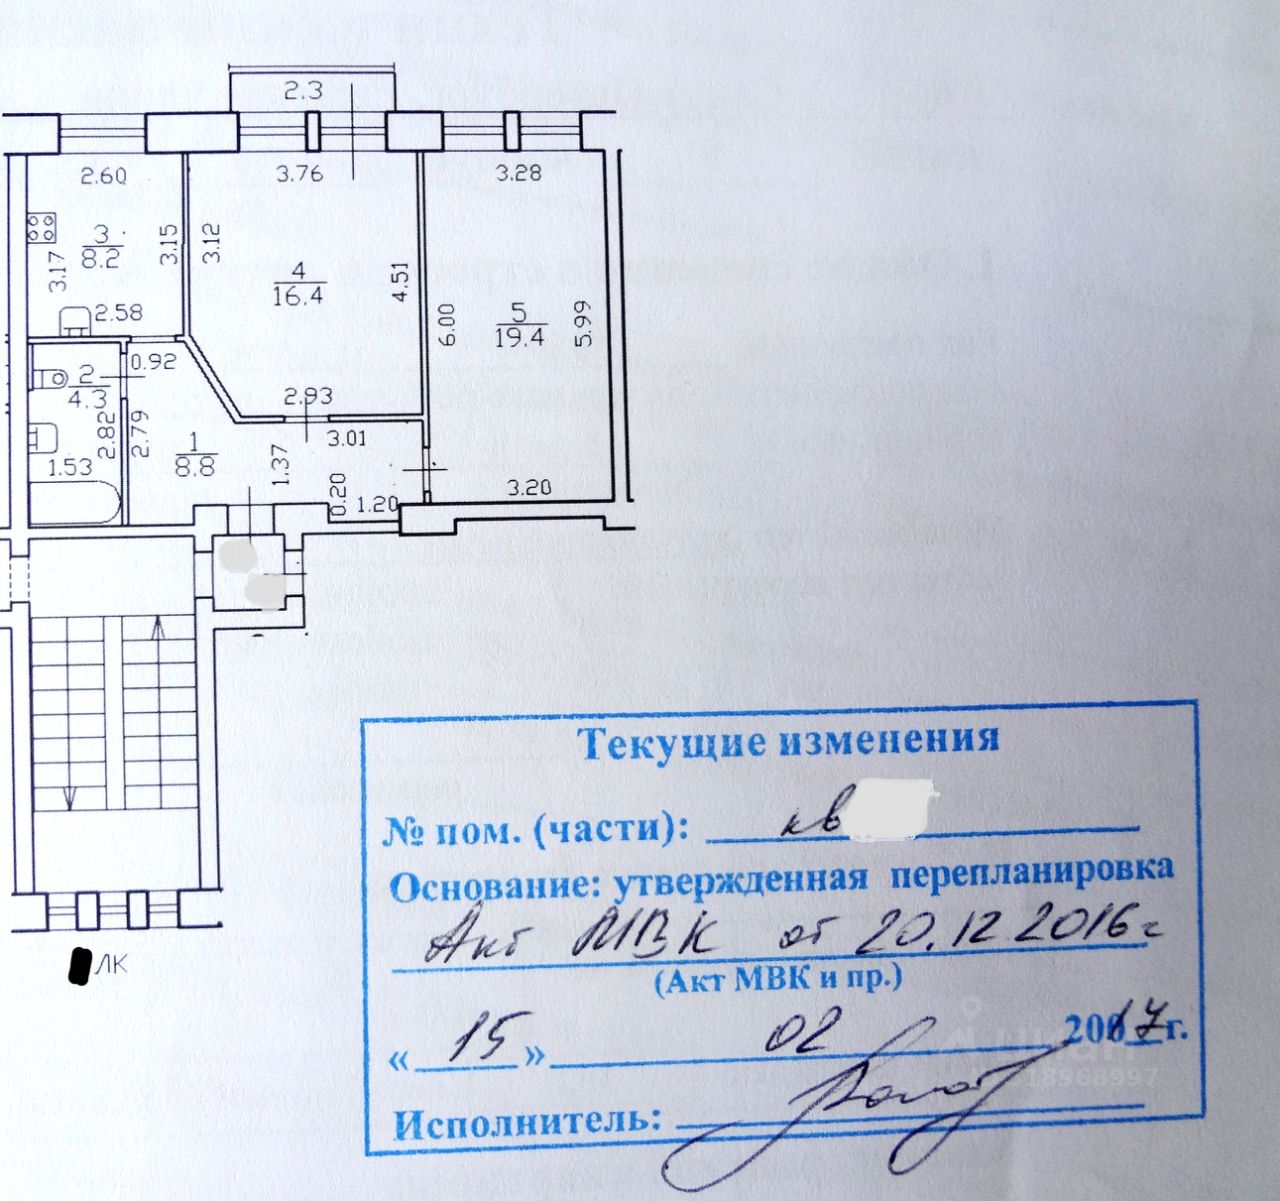 2.3
2.60
3.76
3.28
3
8.2
3.15
3.12
3.17
4
16.4
4.51
6.00
5
19.4
5.99
2.58
0.92
2
4.3
2.93
2.82
2.79
3.01
1
8.8
1.37
1.53
0.20
1.20
3.20
ЛК
Текущие изменения
№ пом. (части): кв
Основание: утвержденная перепланировка
Акт МВК от 20.12.2016 г
(Акт МВК и пр.)
« 15 » 02 2017 г.
Исполнитель: